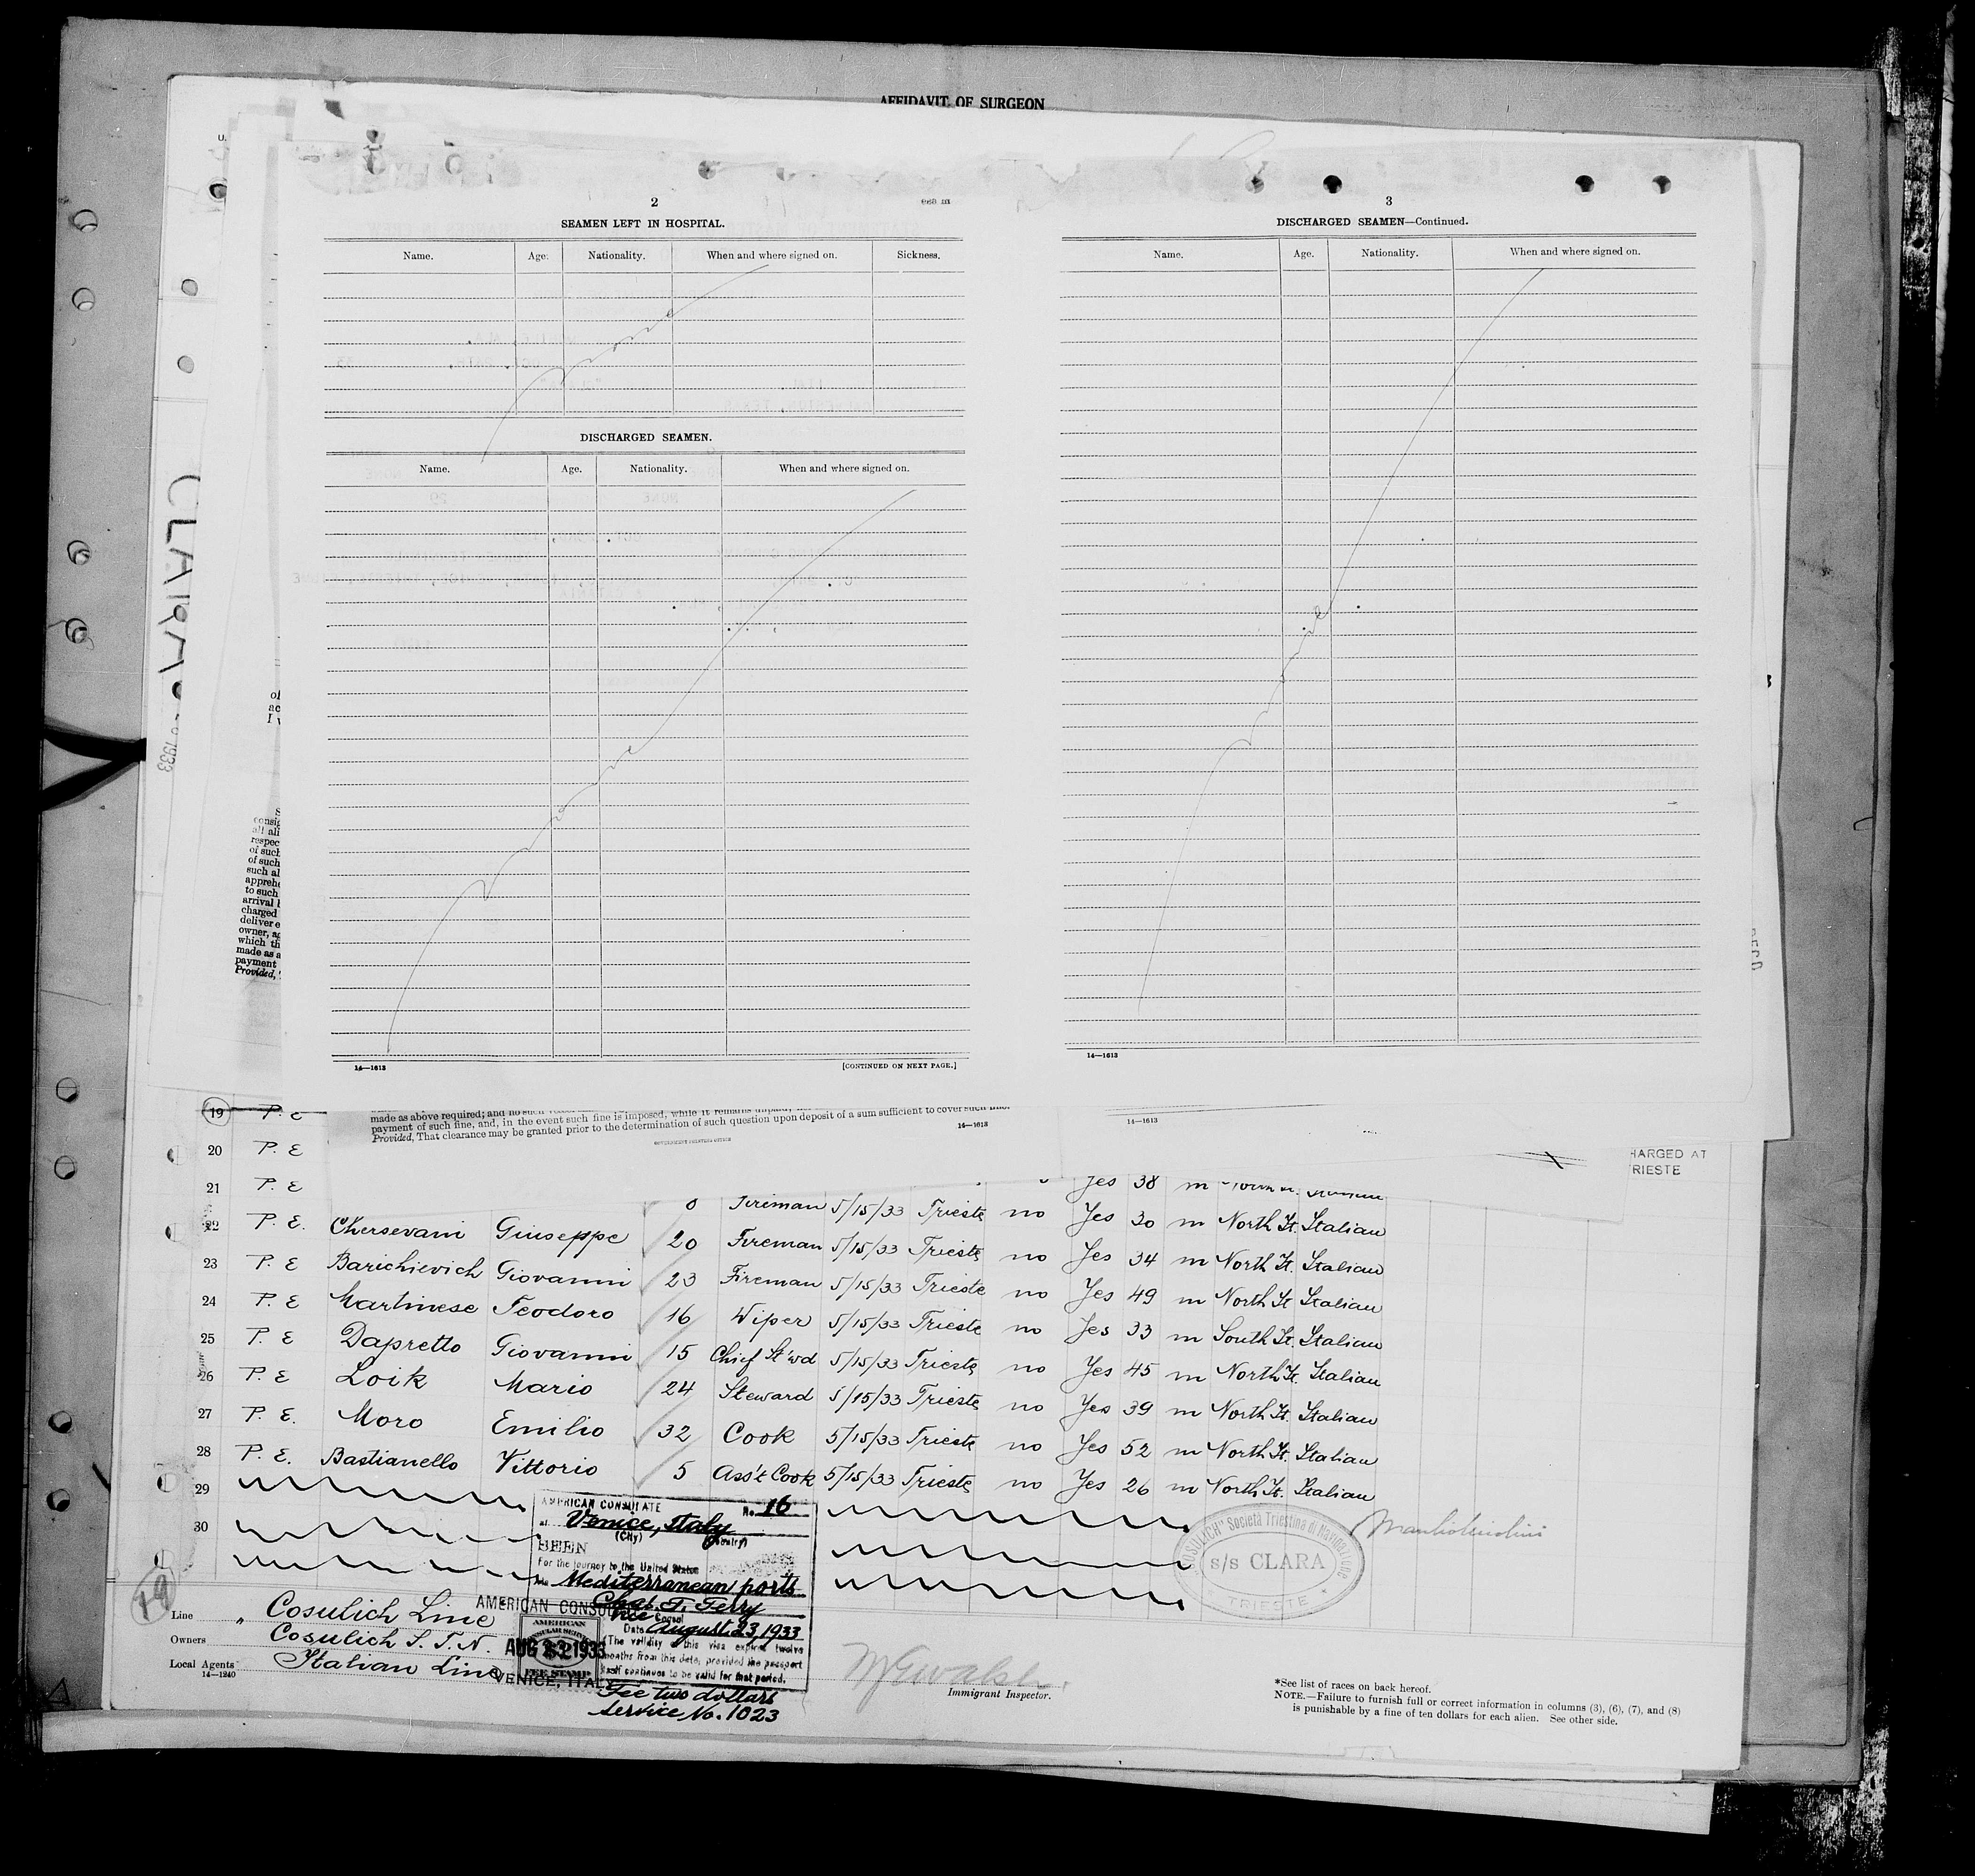 AFFIDAVIT OF SURGEON
2
SEAMEN LEFT IN HOSPITAL.
Name. Age. Nationality. When and where signed on. Sickness.
none
DISCHARGED SEAMEN.
Name. Age. Nationality. When and where signed on.
none
14—1613 [CONTINUED ON NEXT PAGE.]
3
DISCHARGED SEAMEN—Continued.
Name. Age. Nationality. When and where signed on.
none
14—1613
CLARA
1933
consig
all ali
respec
of such
of such
such al
apprehe
to such
arrival
charged
deliver e
owner, ag
which th
made as a
payment
Provided,
made as above required; and no such
fine is imposed, while it remains unpaid,
payment of such fine, and, in the event such
determination of such question upon deposit of a sum sufficient to cover such
Provided, That clearance may be granted prior to the
GOVERNMENT PRINTING OFFICE
14—1613
14—1613
HARGED AT
RIESTE
19 P. E
20 P. E
21 P. E
Yes 38 m Italian
Fireman 5/15/33 Trieste no Yes 30 m North It. Italian
22 P. E. Chersevani Giuseppe 20 Fireman 5/15/33 Trieste no Yes 34 m North It. Italian
23 P. E Barichievich Giovanni 23 Fireman 5/15/33 Trieste no Yes 49 m North It Italian
24 P. E Martinese Teodoro 16 Wiper 5/15/33 Trieste no Yes 33 m South It. Italian
25 P. E Dapretto Giovanni 15 Chief St'wd 5/15/33 Trieste no Yes 45 m North It. Italian
26 P. E Loik Mario 24 Steward 5/15/33 Trieste no Yes 39 m North It. Italian
27 P. E. Moro Emilio 32 Cook 5/15/33 Trieste no Yes 52 m North It. Italian
28 P. E. Bastianello Vittorio 5 Ass't Cook 5/15/33 Trieste no Yes 26 m North It. Italian
29
30
AMERICAN CONSULATE No. 16
at Venice, Italy
(City) (Country)
SEEN
For the journey to the United States
via Mediterranean ports
Chas. T. Terry
Vice Consul
Date August 23, 1933
(The validity of this visa expires twelve
months from this date, provided the passport
itself continues to be valid for that period.
Fee two dollars
Service No. 1023
AMERICAN CONSUL
AMERICAN
CONSULAR SERVICE
FEE STAMP
AUG 23 1933
VENICE, ITALY
"COSULICH" Società Triestina di Navigazione
s/s CLARA
TRIESTE
19
Line Cosulich Line
Owners Cosulich S. T. N.
Local Agents Italian Line
14—1240
Immigrant Inspector.
*See list of races on back hereof.
NOTE.—Failure to furnish full or correct information in columns (3), (6), (7), and (8)
is punishable by a fine of ten dollars for each alien. See other side.